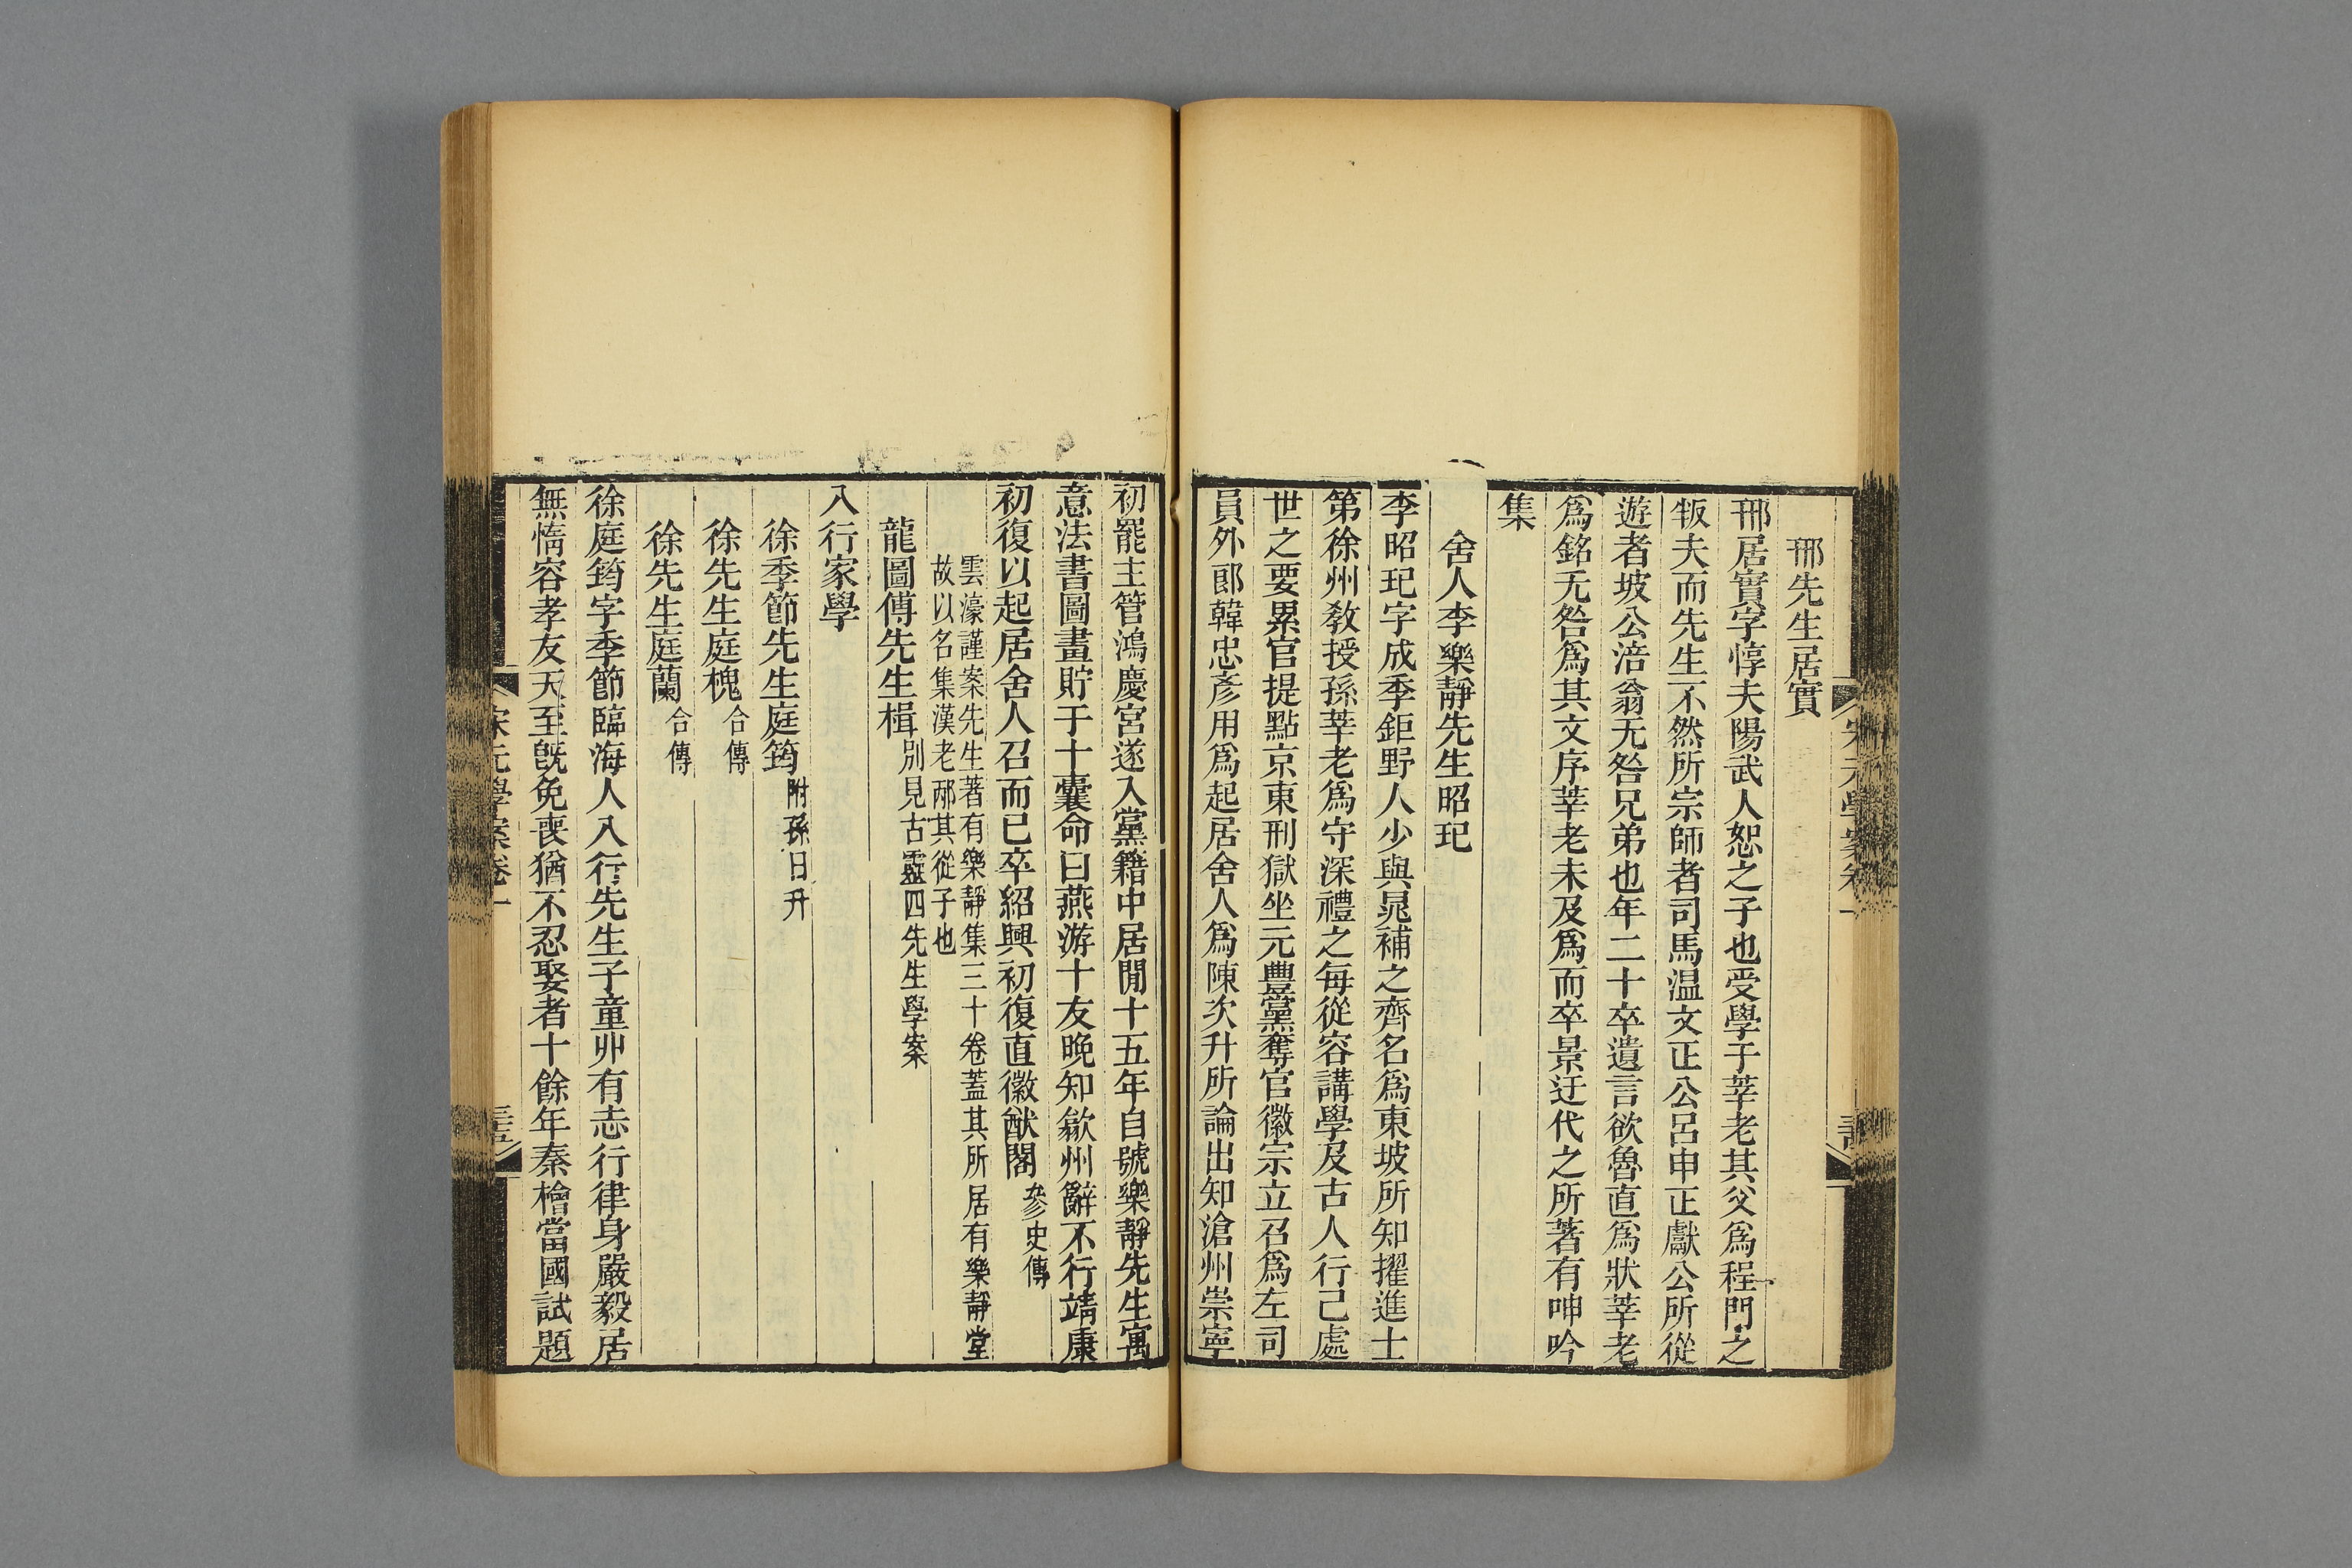 邢先生居實
邢居實字惇夫陽武人恕之子也受學于莘老其父爲程門之
叛夫而先生不然所宗師者司馬温文正公呂申正獻公所從
遊者坡公涪翁无咎兄弟也年二十卒遺言欲魯直爲狀莘老
爲銘无咎爲其文序莘老未及爲而卒景迂代之所著有呻吟
集
舍人李樂靜先生昭玘
李昭玘字成季鉅野人少與晁補之齊名爲東坡所知擢進士
第徐州敎授孫莘老爲守深禮之每從容講學及古人行己處
世之要累官提點京東刑獄坐元豐黨奪官徽宗立召爲左司
員外郞韓忠彥用爲起居舍人爲陳次升所論出知滄州崇寧
初罷主管鴻慶宮遂入黨籍中居閒十五年自號樂靜先生寓
意法書圖畫貯于十囊命曰燕游十友晚知歙州辭不行靖康
初復以起居舍人召而已卒紹興初復直徽猷閣參史傳
雲濠謹案先生著有樂靜集三十卷蓋其所居有樂靜堂
故以名集漢老邴其從子也
龍圖傅先生楫別見古靈四先生學案
八行家學
徐季節先生庭筠附孫日升
徐先生庭槐合傳
徐先生庭蘭合傳
徐庭筠字季節臨海人八行先生子童丱有志行律身嚴毅居
無惰容孝友天至旣免喪猶不忍娶者十餘年秦檜當國試題
宋元學案卷一